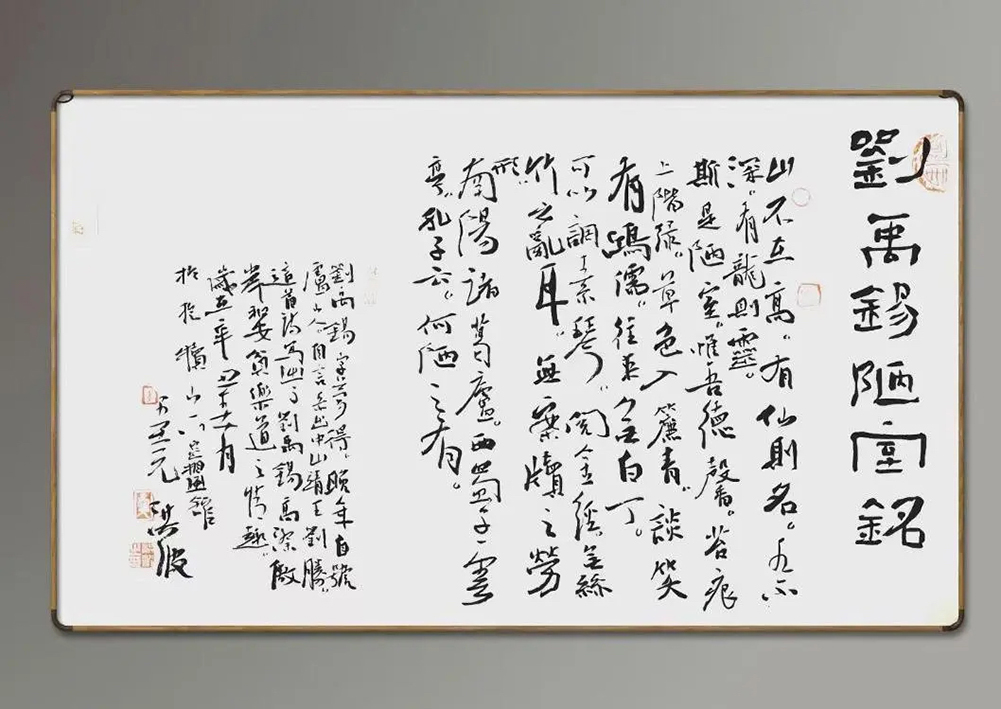 劉禹錫陋室銘
山不在高。有仙則名。水不
深。有龍則靈。
斯是陋室。惟吾德馨。苔痕
上階綠。草色入簾青。談笑
有鴻儒。往來無白丁。
可以調素琴。閱金經。無絲
竹之亂耳。無案牘之勞
形。
南陽諸葛廬。西蜀子雲
亭。孔子云。何陋之有。
劉禹錫字夢得。晚年自號
廬山人自言系出中山靖王劉勝。
這首詩寫出了劉禹錫高潔傲
岸和安貧樂道之情趣。
歲在辛丑十一月
洪波